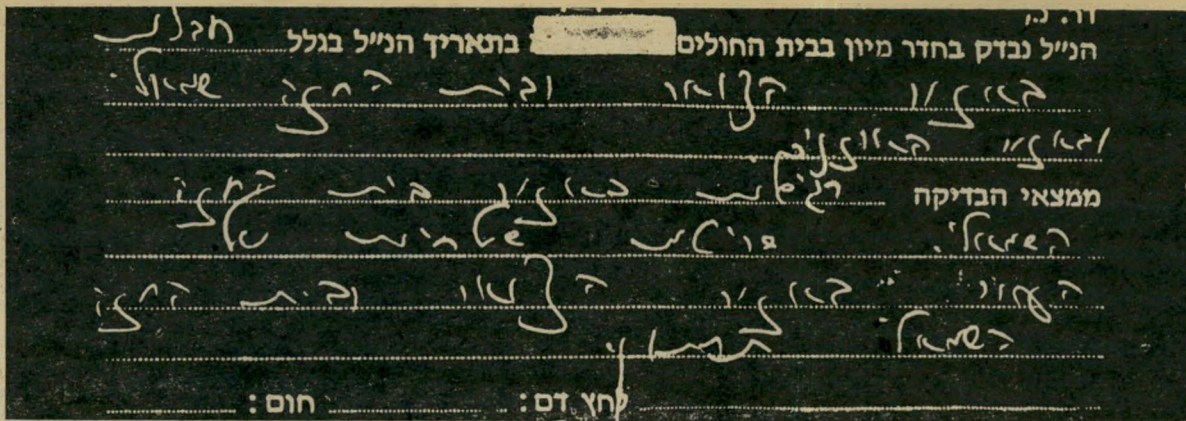 הנ״ל נבדק בחדר מיון בבית החולים בתאריך הנ״ל בגלל חבלות
באיזור הצואר ובית החזה שמאל.
ובאיזור
ממצאי הבדיקה רגישות באיזור בית החזה
השמאלי. שריטות שטחיות של
העור באיזור הצואר ובית החזה
השמאלי
לחץ דם: חום: